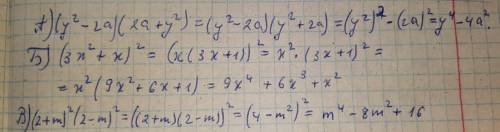 А) (y² - 2a)(2a + y²) = (y² - 2a)(y² + 2a) = (y²)² - (2a)² = y⁴ - 4a².
Б) (3x² + x)² = (x(3x + 1))² = x² · (3x + 1)² =
= x² (9x² + 6x + 1) = 9x⁴ + 6x³ + x²
В) (2+m)² (2-m)² = ((2+m)(2-m))² = (4 - m²)² = m⁴ - 8m² + 16